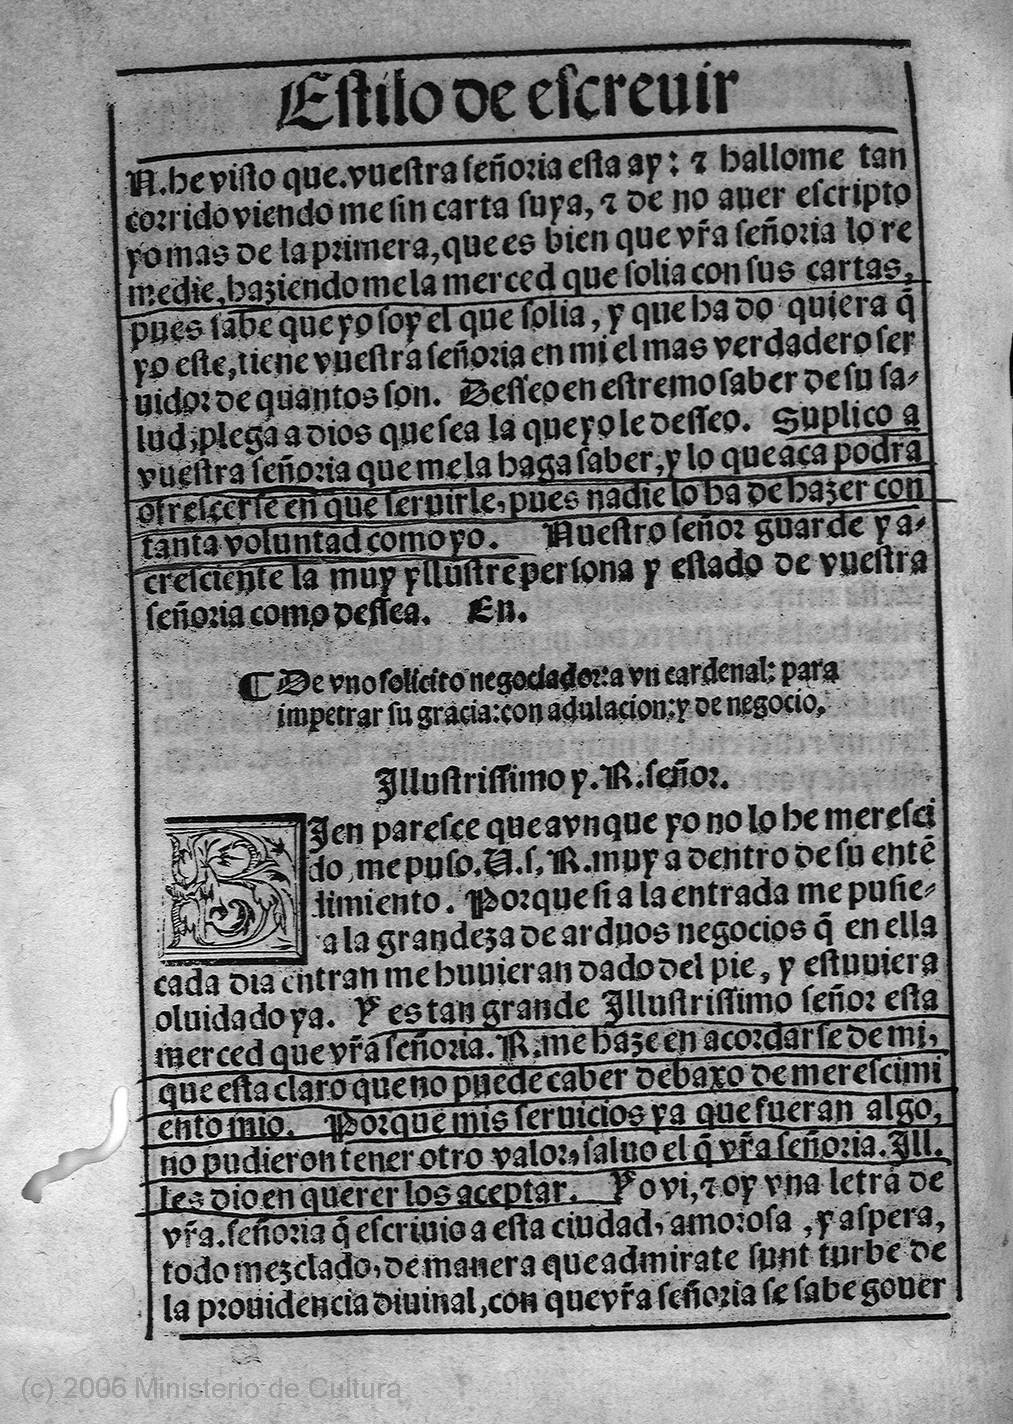 Estilo de escreuir
N. he visto que. vuestra señoria esta ay: ⁊ hallome tan
corrido viendo me sin carta suya, ⁊ de no auer escripto
yo mas de la primera, que es bien que vr̃a señoria lo re
medie, haziendo me la merced que solia con sus cartas,
pues sabe que yo soy el que solia, y que ha do quiera q̃
yo este, tiene vuestra señoria en mi el mas verdadero ser
uidor de quantos son. Desseo en estremo saber de su sa-
lud, plega a dios que sea la que yo le desseo. Suplico a
vuestra señoria que me la haga saber, y lo que aca podra
ofrescerse en que seruirle, pues nadie lo ha de hazer con
tanta voluntad como yo. Nuestro señor guarde y a-
cresciente la muy yllustre persona y estado de vuestra
señoria como dessea. En.
¶ De vno solicito negociador: a vn cardenal: para
impetrar su gracia: con adulacion: y de negocio.
Illustrissimo y. R. señor.
BIen paresce que avnque yo no lo he meresci
do, me puso. U. s. R. muy a dentro de su entẽ
dimiento. Porque si a la entrada me pusie-
a la grandeza de arduos negocios q̃ en ella
cada dia entran me huuieran dado del pie, y estuuiera
oluidado ya. Y es tan grande Illustrissimo señor esta
merced que vr̃a señoria. R. me haze en acordarse de mi,
que esta claro que no puede caber debaxo de merescimi
ento mio. Porque mis seruicios ya que fueran algo,
no pudieron tener otro valor, saluo el q̃ vr̃a señoria. Ill.
les dio en querer los aceptar. Yo vi, ⁊ oy vna letra de
vr̃a. señoria q̃ escriuio a esta ciudad, amorosa, y aspera,
todo mezclado, de manera que admirate sunt turbe de
la prouidencia diuinal, con que vr̃a señoria se sabe gouer
(c) 2006 Ministerio de Cultura